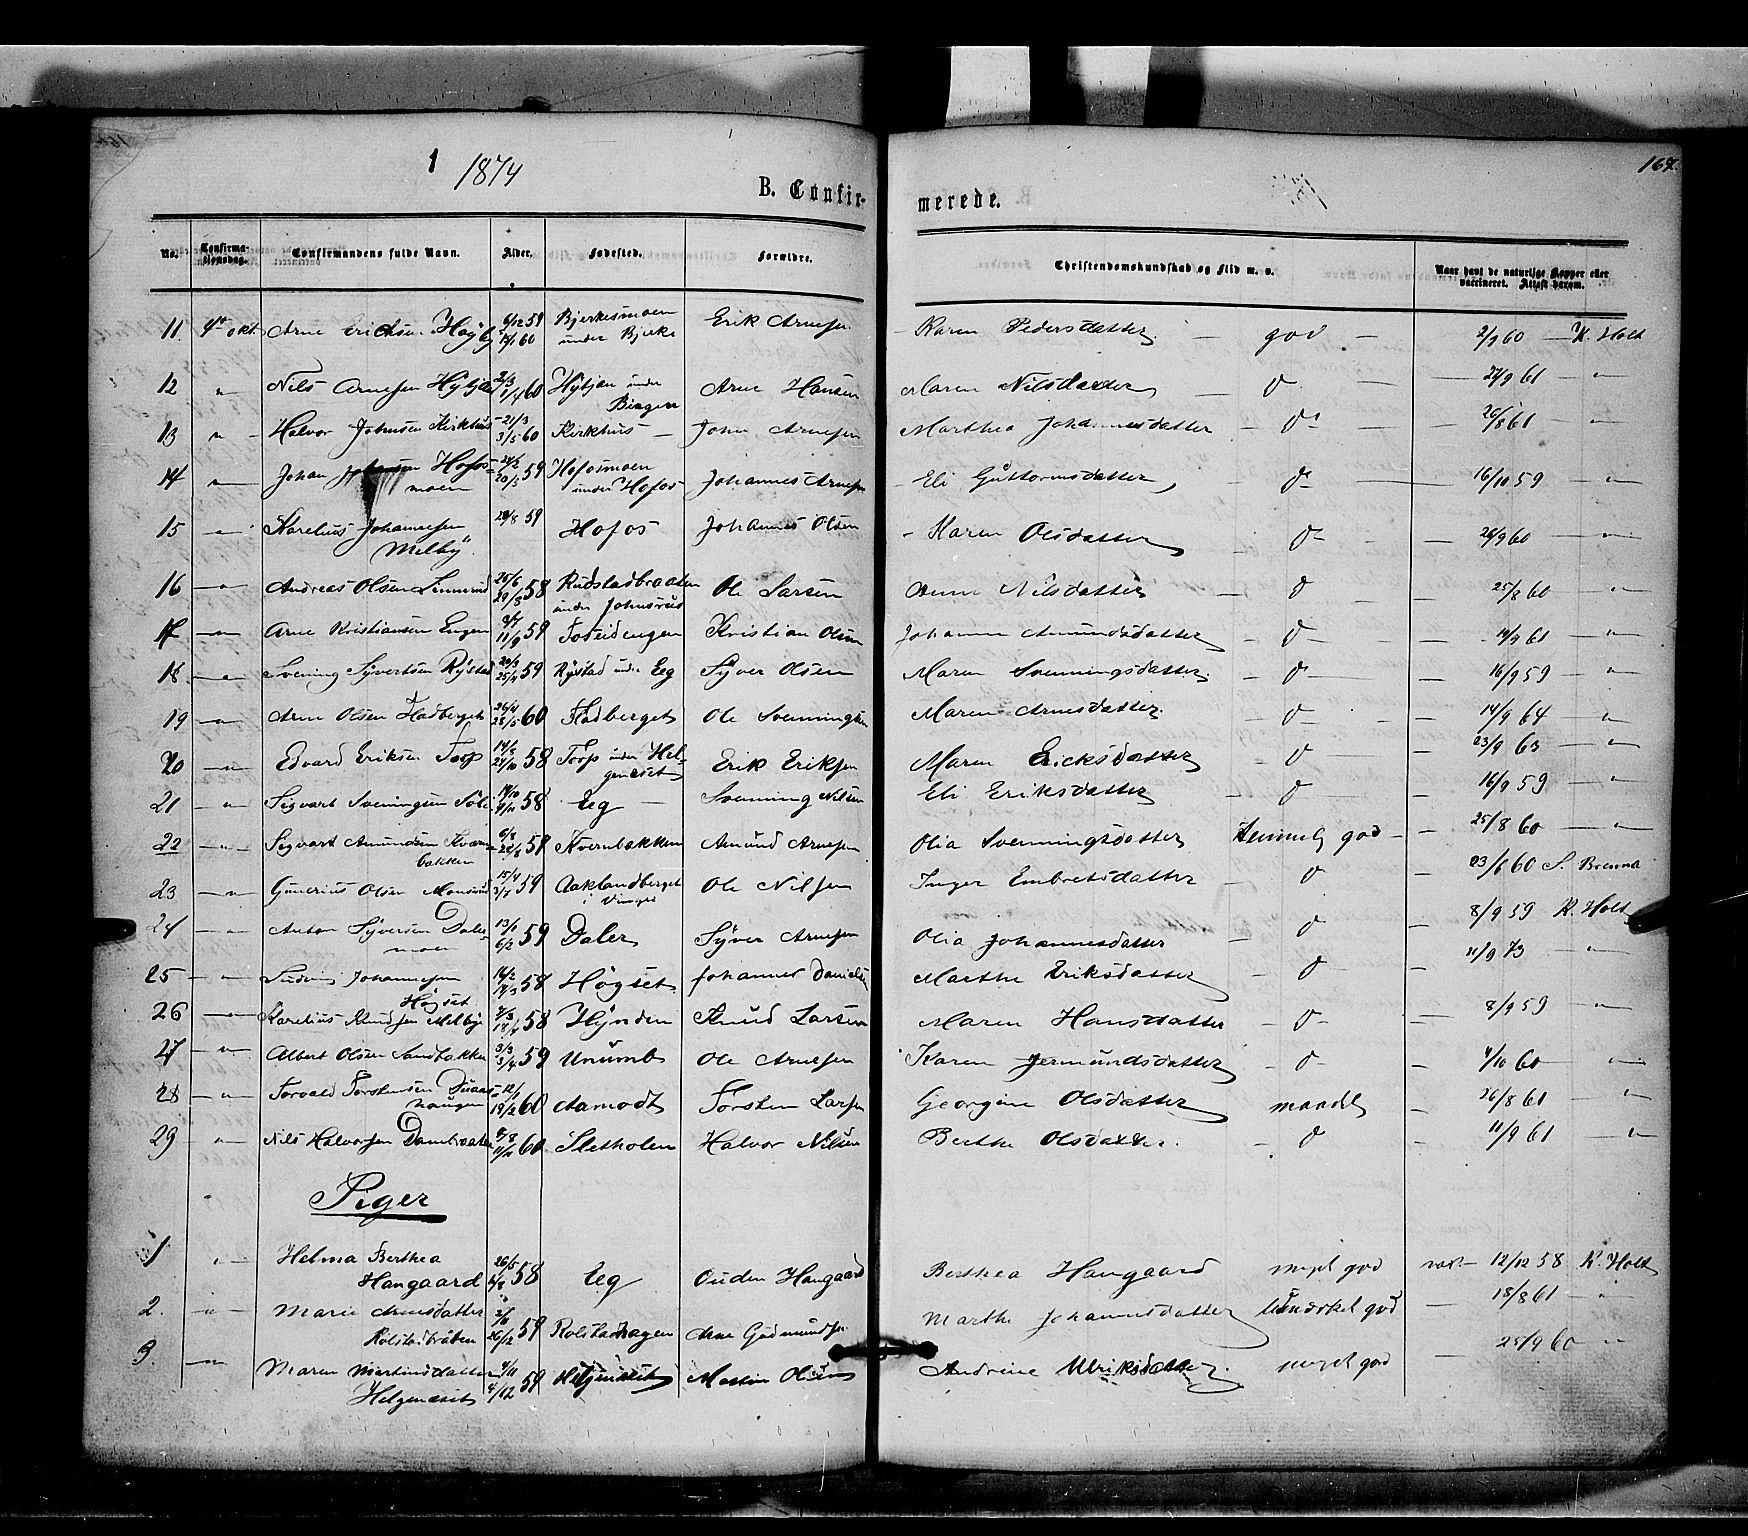 1874
167.
B. Confir-
merede.
No. Confirma-tionsdag. Confirmandens fulde Navn. Alder. Fødested. Forældre. Christendomskundskab og Flid m. v. Naar havt de naturlige Kopper eller vaccineret. Attest derom.
11. 4de okt. Arne Erichsen 6/12 59 Bjerkesmoen under Bjerke Erik Arnesen - Karen Pedersdatter. god 2/9 60 K. Holt
12 " Nils Arnesen 60 under Bingen Arne Hansen Maren Nilsdatter 24/9 61 "
13 " Halvor Johnsen Kirkhus 21/3 3/5 60 Kirkhus John Arnesen Marthea Johannesdatter 20/8 61 "
14 " Johan Johansen Hofos-moen 59 Hofosmoen under Hofos Johannes Arnesen - Eli Guttormsdatter 16/10 59 "
15 " Karelius Johannesen Melby 29/8 59 Hofos Johannes Olsen - Karen Olsdatter 26/9 60 "
16 " Andreas Olsen 25/6 29/8 58 Rudstadbraaten under Johnsrud Ole Larsen Anne Nilsdatter 25/8 60 "
17 " Arne Kristiansen Engen 11/9 59 Kristian Olsen Johanne Amundsdatter 14/9 61 "
18 " Svening Syversen Rystad 25/4 59 Rystad under Eeg Syver Olsen Maren Svenningsdatter 16/9 59 "
19 " Arne Olsen Fladberget 26/4 28/5 60 Fladberget Ole Svenningsen Maren Arnesdatter 14/9 64 "
20 " Edvard Eriksen Torp 58 Torp under Hel-geneset Erik Eriksen Maren Ericksdatter 23/9 63 "
21 " Sigvart Sveningsen 58 Eeg Svenning Nilsen Eli Eriksdatter 16/9 59 "
22 " Sigvart Amundsen Kværn-bakken 59 Kvernbakken Amund Arnesen Olia Svenningsdatter temmelig god 25/8 60 "
23 " Gunerius Olsen 15/4 59 Aaklandberget i Vinger Ole Nilsen Inger Embretsdatter 23/6 60 S. Brenna
24 " Anton Syversen Daler-moen 13/1 6/2 59 Daler Syver Arnesen Olia Johannesdatter 8/9 59 K. Holt
25 " Ludvig Johannesen Høgset 14/2 58 Høgset Johannes Danielsen Marthe Eriksdatter 11/9 73 "
26 " Karelius Knudsen Melbye 58 Hynden Knud Larsen Maren Hansdatter 8/9 59 "
27 " Albert Olsen Sandbakken 3/3 3/4 59 Unumb Ole Arnesen Karen Jermundsdatter 4/10 60 "
28 " Torvald Torstensen 12/1 19/2 60 Aamodt Torsten Larsen Georgine Olsdatter maadel 26/8 61 "
29 " Nils Halvorsen Dambraaten 60 Sletholen Halvor Nilsen Berthe Olsdatter. 11/9 61 "
Piger
1 " Helma Berthea Haugaard 26/5 58 Eeg Ouden Haugaard Berthea Haugaard meget god vac. 12/12 58 K. Holt
2. " Marie Arnesdatter Rolstadbråten 26/12 59 Rolstadhagen Arne Gudmundsen Marthe Johannesdatter Udmærket god 18/8 61 "
3. " Maren Martinusdatter Helgeneset 4/11 4/12 59 Helgeneset Martin Olsen Andrine Ulriksdatter. meget god 25/9 60 "